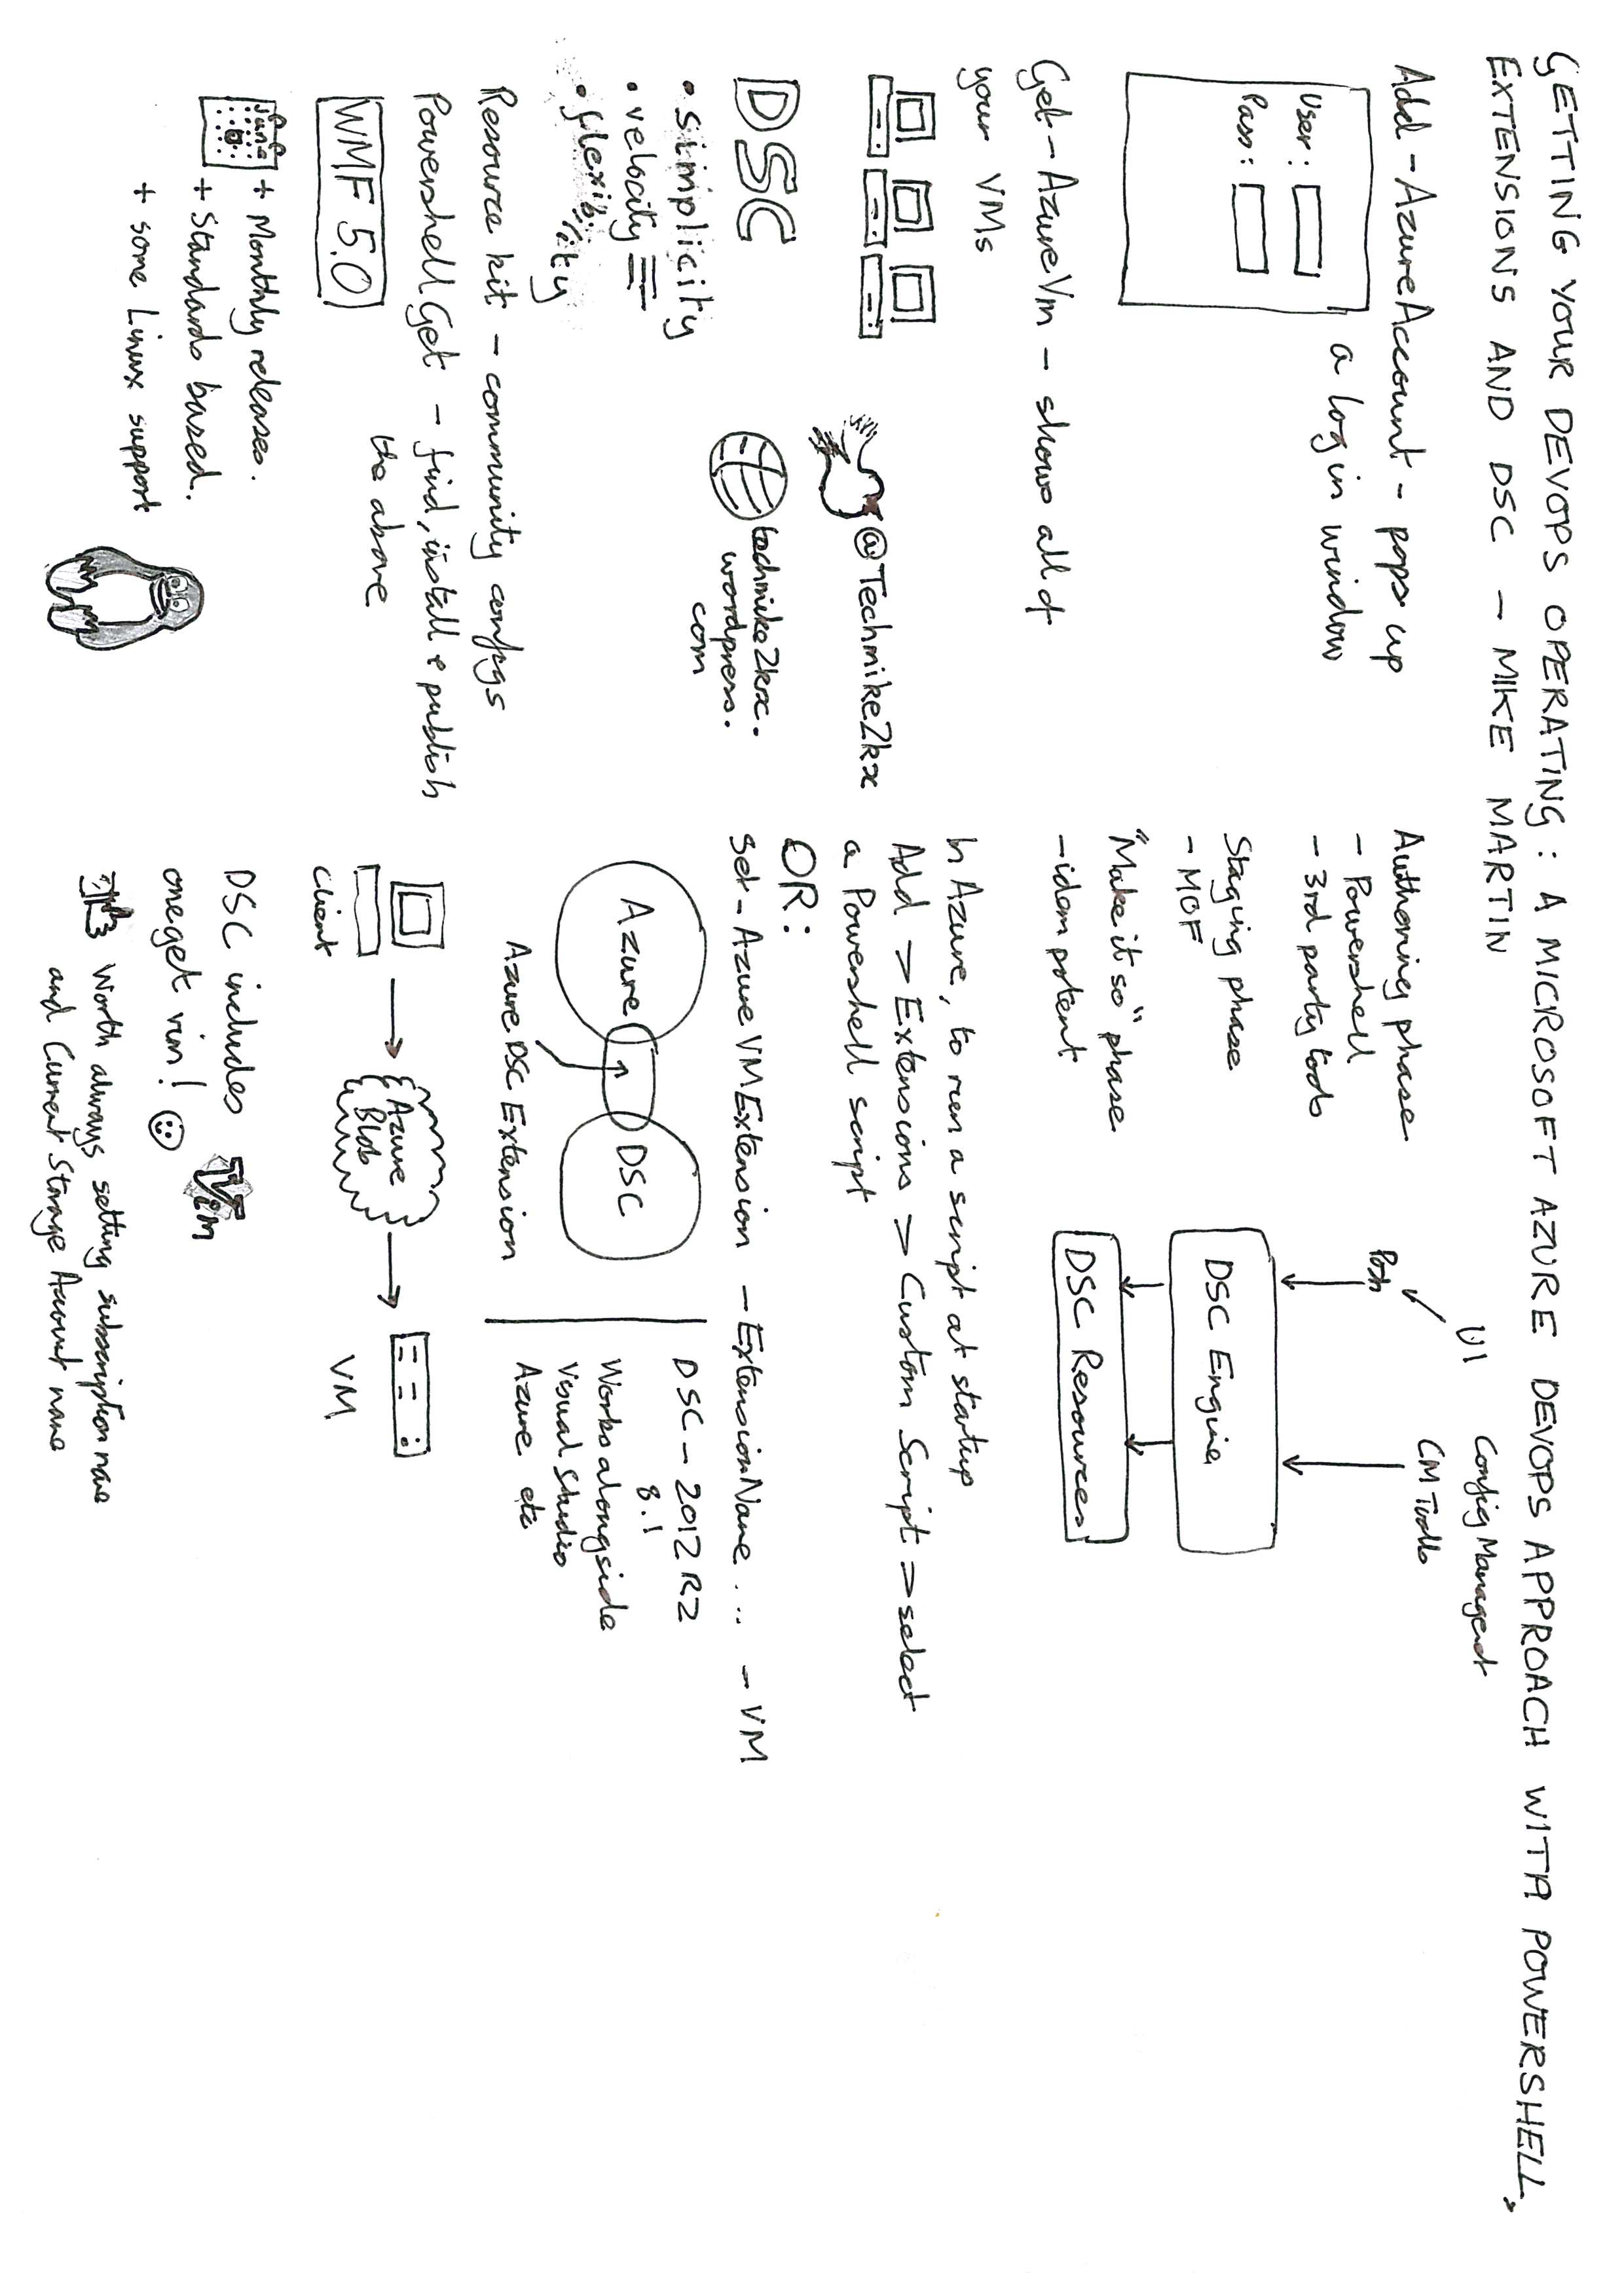 GETTING YOUR DEVOPS OPERATING: A MICROSOFT AZURE DEVOPS APPROACH WITH POWERSHELL,
EXTENSIONS AND DSC - MIKE MARTIN
Add-AzureAccount - pops up
a login window
User:
Pass:
Get-AzureVm - shows all of
your VMs
@Techmike2kx
techmike2kx.
wordpress.
com
DSC
• simplicity
• velocity
• flexibility
Resource kit - community configs
PowershellGet - find, install & publish
the above
WMF 5.0
June
+ Monthly releases.
+ Standards based.
+ some Linux support
Authoring phase
- Powershell
- 3rd party tools
Staging phase
- MOF
"Make it so" phase
- idempotent
UI
Posh
Config Managemet
CM Tools
DSC Engine
DSC Resources
In Azure, to run a script at startup
Add > Extensions > Custom Script > select
a Powershell script
OR:
set-AzureVMExtension -ExtensionName ... - VM
Azure
DSC
Azure DSC Extension
DSC - 2012 R2
8.1
Works alongside
Visual Studio
Azure etc
Client
Azure
Blob
VM
DSC includes
oneget vim!
Vim
Worth always setting subscription name
and Current Storage Account name